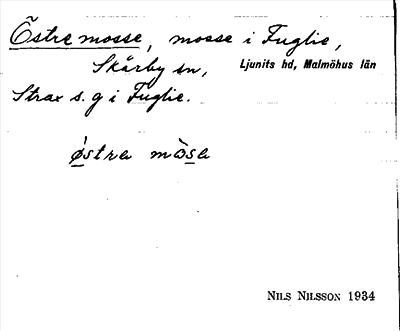 Östre mosse, mosse i Fuglie,
Skårby sn, Ljunits hd, Malmöhus län
Strax s. g i Fuglie.
östre mòse
NILS NILSSON 1934